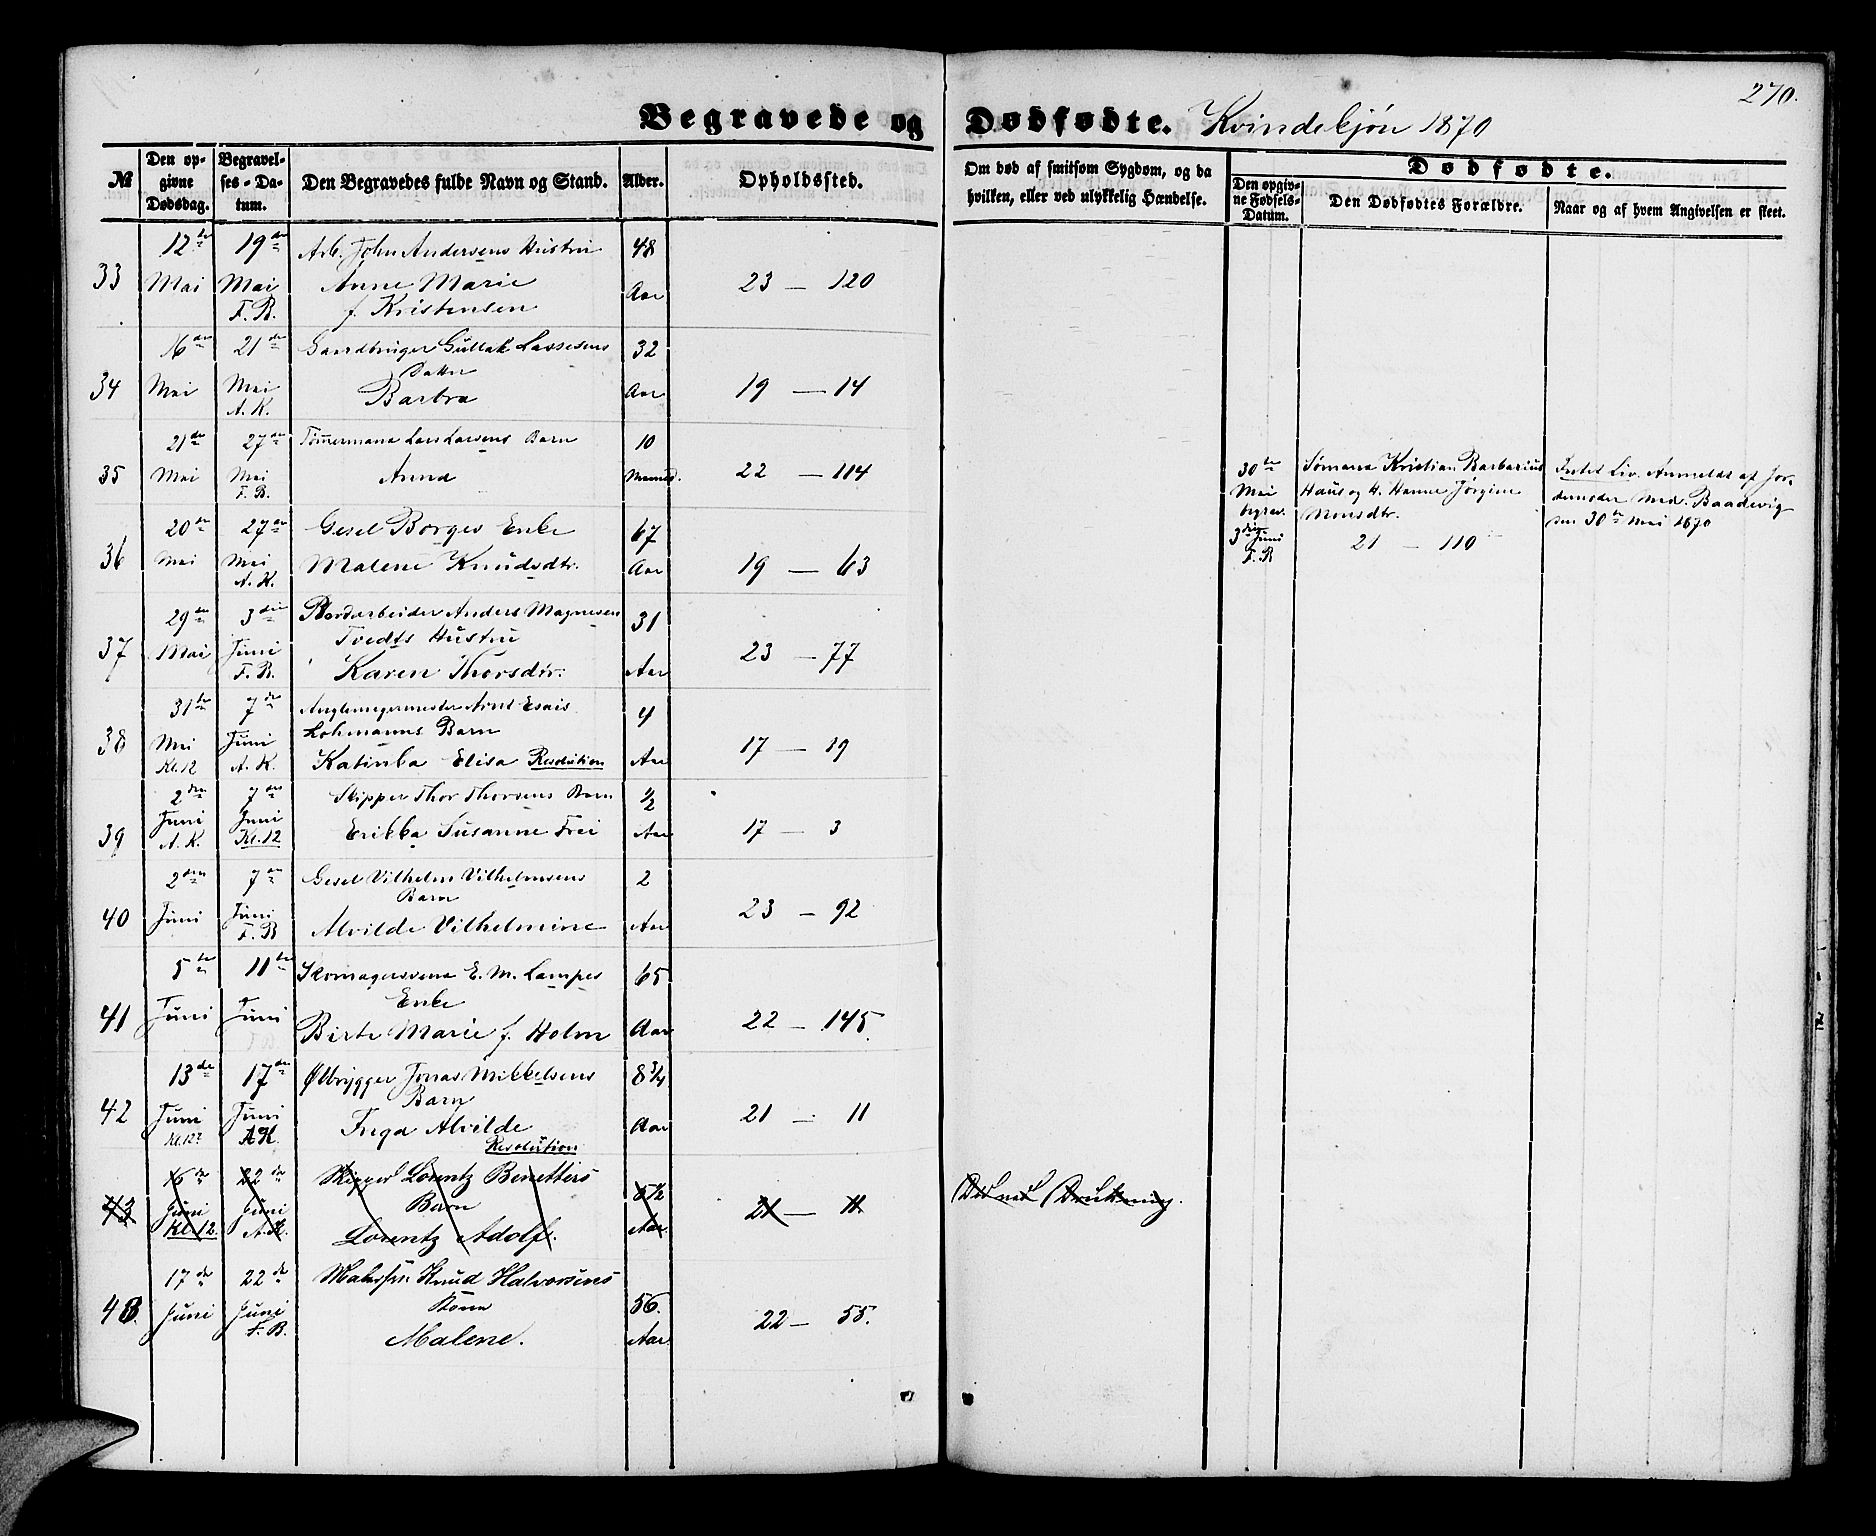 270.
Begravede og Dødfødte. Kvindekjøn 1870
№
Den opgivne Dødsdag.
Begravelses-Datum.
Den Begravedes fulde Navn og Stand.
Alder.
Opholdssted.
Om død af smitsom Sygdom, og da hvilken, eller ved ulykkelig Hændelse.
Dødfødte.
Den opgivne Fødsels-Datum.
Den Dødfødtes Forældre.
Naar og af hvem Angivelsen er skeet.
12te 19de Arb. John Andersens Hustru 48
33 Mai Mai Anne Marie Aar 23 — 120
F. B. f. Kristensen
16de 21de Gaardbruger Gullak Lassesens 32
Datter
34 Mai Mai Barbra Aar 19 — 14
A. K.
21de 27de Tømermand Lars Larsens Barn 10
35 Mai Mai Anna Maaned. 22 — 114
F. B.
30te Sømand Kristian Barbarius
Mai Haus og H. Hanne Jørgine
begrav. Monsdtr.
3die Juni 21 — 110
F. B
Intet Liv. Anmeldt af Jor-
demoder Mad. Baadevig
den 30te Mai 1870
20de 27de Gesel Borges Enke 67
36 Mai Mai Malene Knudsdtr. Aar 19 — 63
A. K.
29de 3die Bordarbeider Anders Magnesen 31
Tvedts Hustru
37 Mai Juni Karen Thorsdtr. Aar 23 — 77
F. B.
31te 7de Arnt Esais 4
Lohmanns Barn
38 Mai Juni Katinka Elisa Resolution Aar 17 — 19
Kl. 12 A. K.
2den 7de Skipper Thor Thorsens Barn ½
39 Juni Juni Erikka Susanne Frei Aar 17 — 3
A. K. Kl. 12
2den 7de Gesel Vilhelm Vilhelmsens 2
Barn
40 Juni Juni Alvilde Vilhelmine Aar 23 — 92
F. B
5te 11te Skomagersvend E. M. Lampes 65
Enke
41 Juni Juni Birte Marie f. Holm Aar 22 — 145
13de 17de Ølbrygger Jonas Mikkelsens 8¾
Barn
42 Juni Juni Inga Alvilde Aar 21 — 11
Kl. 12 A K. Resolution
16de 22de Skipper Lorentz Benetters 6½
43 Juni Juni Barn Aar 21 — 11 Død ved Drukning.
Kl. 12. A. K. Lorentz Adolf.
17de 22de Knud Halvorsens
Kone 56.
43. Juni Juni Malene. Aar 22 — 55.
F. B.